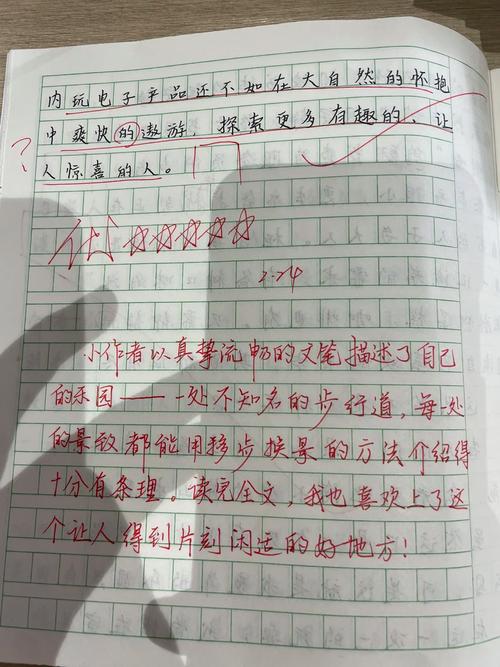 内玩电子产品还不如在大自然的怀抱
中爽快的遨游，探索更多有趣的、让
?
人惊喜的人。
优☆☆☆☆☆
2.24
小作者以真挚流畅的文笔描述了自己
的乐园——一处不知名的步行道，每一处
的景致都能用移步换景的方法介绍得
十分有条理。读完全文，我也喜欢上了这
个让人得到片刻闲适的好地方！